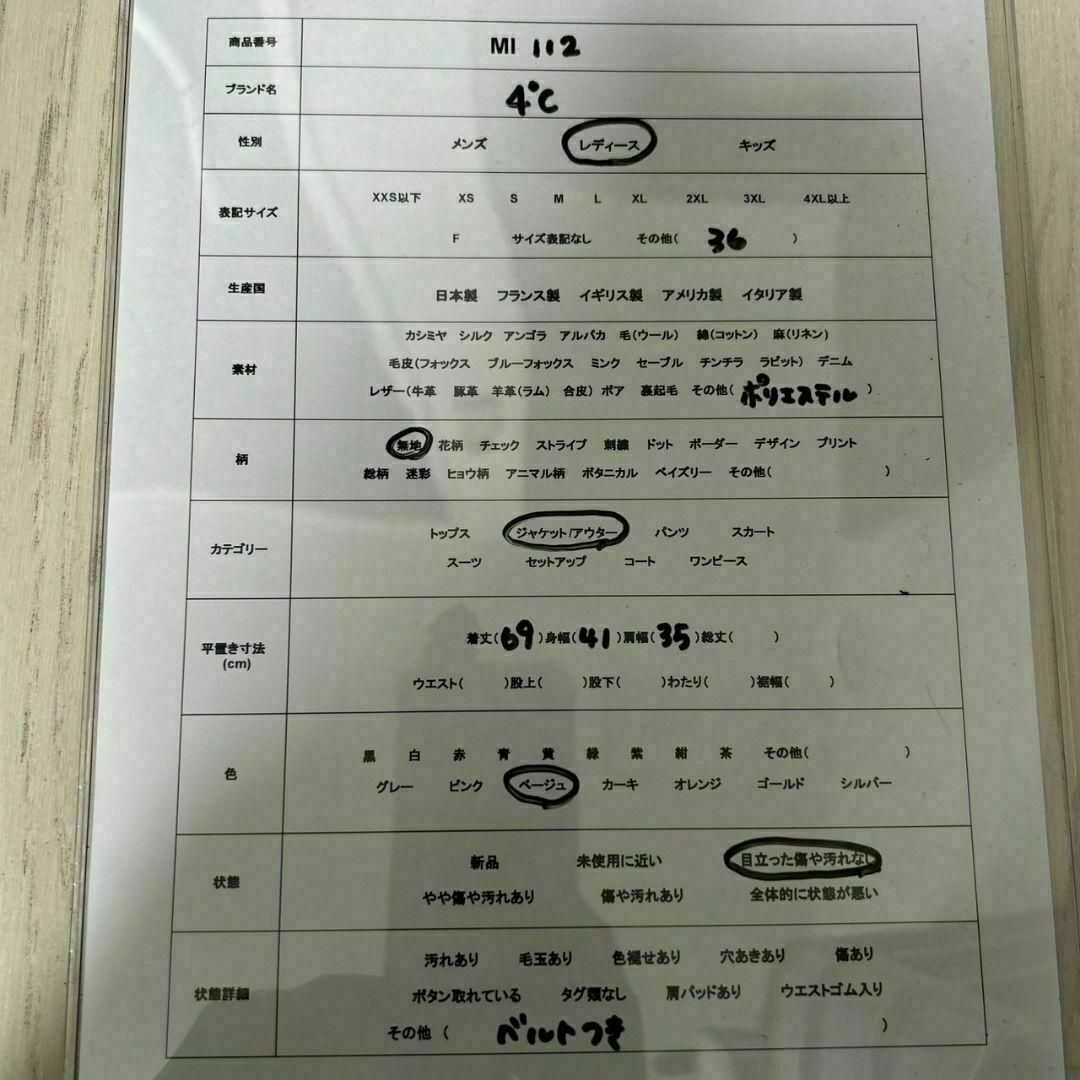 商品番号 MI 112
ブランド名 4℃
性別 メンズ レディース キッズ
表記サイズ XXS以下 XS S M L XL 2XL 3XL 4XL以上
F サイズ表記なし その他( 36 )
生産国 日本製 フランス製 イギリス製 アメリカ製 イタリア製
素材 カシミヤ シルク アンゴラ アルパカ 毛(ウール) 綿(コットン) 麻(リネン)
毛皮(フォックス ブルーフォックス ミンク セーブル チンチラ ラビット) デニム
レザー(牛革 豚革 羊革(ラム) 合皮) ボア 裏起毛 その他( ポリエステル )
柄 無地 花柄 チェック ストライプ 刺繍 ドット ボーダー デザイン プリント
総柄 迷彩 ヒョウ柄 アニマル柄 ボタニカル ペイズリー その他( )
カテゴリー トップス ジャケット/アウター パンツ スカート
スーツ セットアップ コート ワンピース
平置き寸法
(cm)
着丈( 69 )身幅( 41 )肩幅( 35 )総丈( )
ウエスト( )股上( )股下( )わたり( )裾幅( )
色 黒 白 赤 青 黄 緑 紫 紺 茶 その他( )
グレー ピンク ベージュ カーキ オレンジ ゴールド シルバー
状態 新品 未使用に近い 目立った傷や汚れなし
やや傷や汚れあり 傷や汚れあり 全体的に状態が悪い
状態詳細 汚れあり 毛玉あり 色褪せあり 穴あきあり 傷あり
ボタン取れている タグ類なし 肩パッドあり ウエストゴム入り
その他 ( ベルトつき )